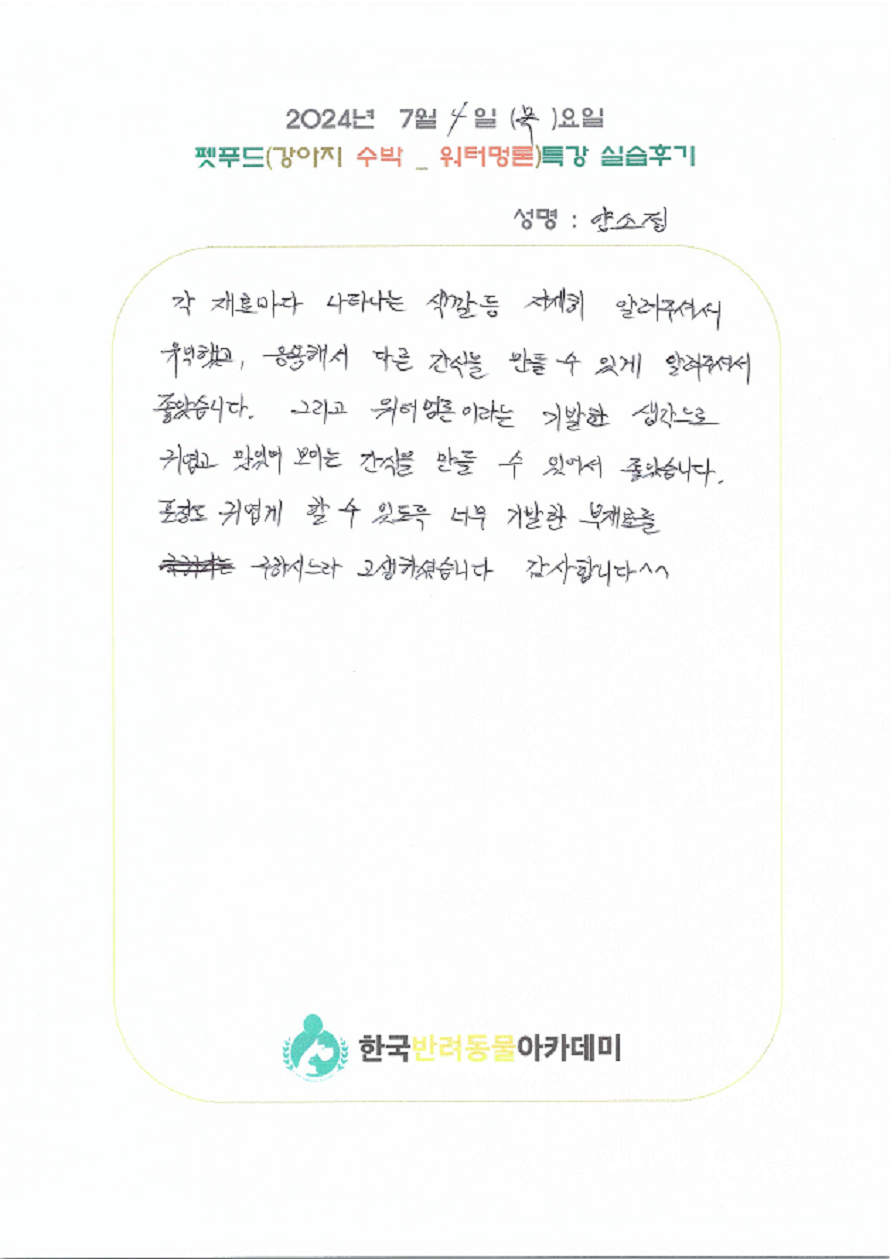 2024년 7월 4일 (목)요일
펫푸드(강아지 수박 _ 워터멍론)특강 실습후기
성명 : 양소정
각 재료마다 나타나는 색깔등 자세히 알려주셔서
유익했고, 응용해서 다른 간식을 만들 수 있게 알려주셔서
좋았습니다. 그리고 워터멍론이라는 기발한 생각으로
귀엽고 맛있어 보이는 간식을 만들 수 있어서 좋았습니다.
포장도 귀엽게 할 수 있도록 너무 기발한 부재료를
구하시느라 고생하셨습니다 감사합니다^^
한국반려동물아카데미